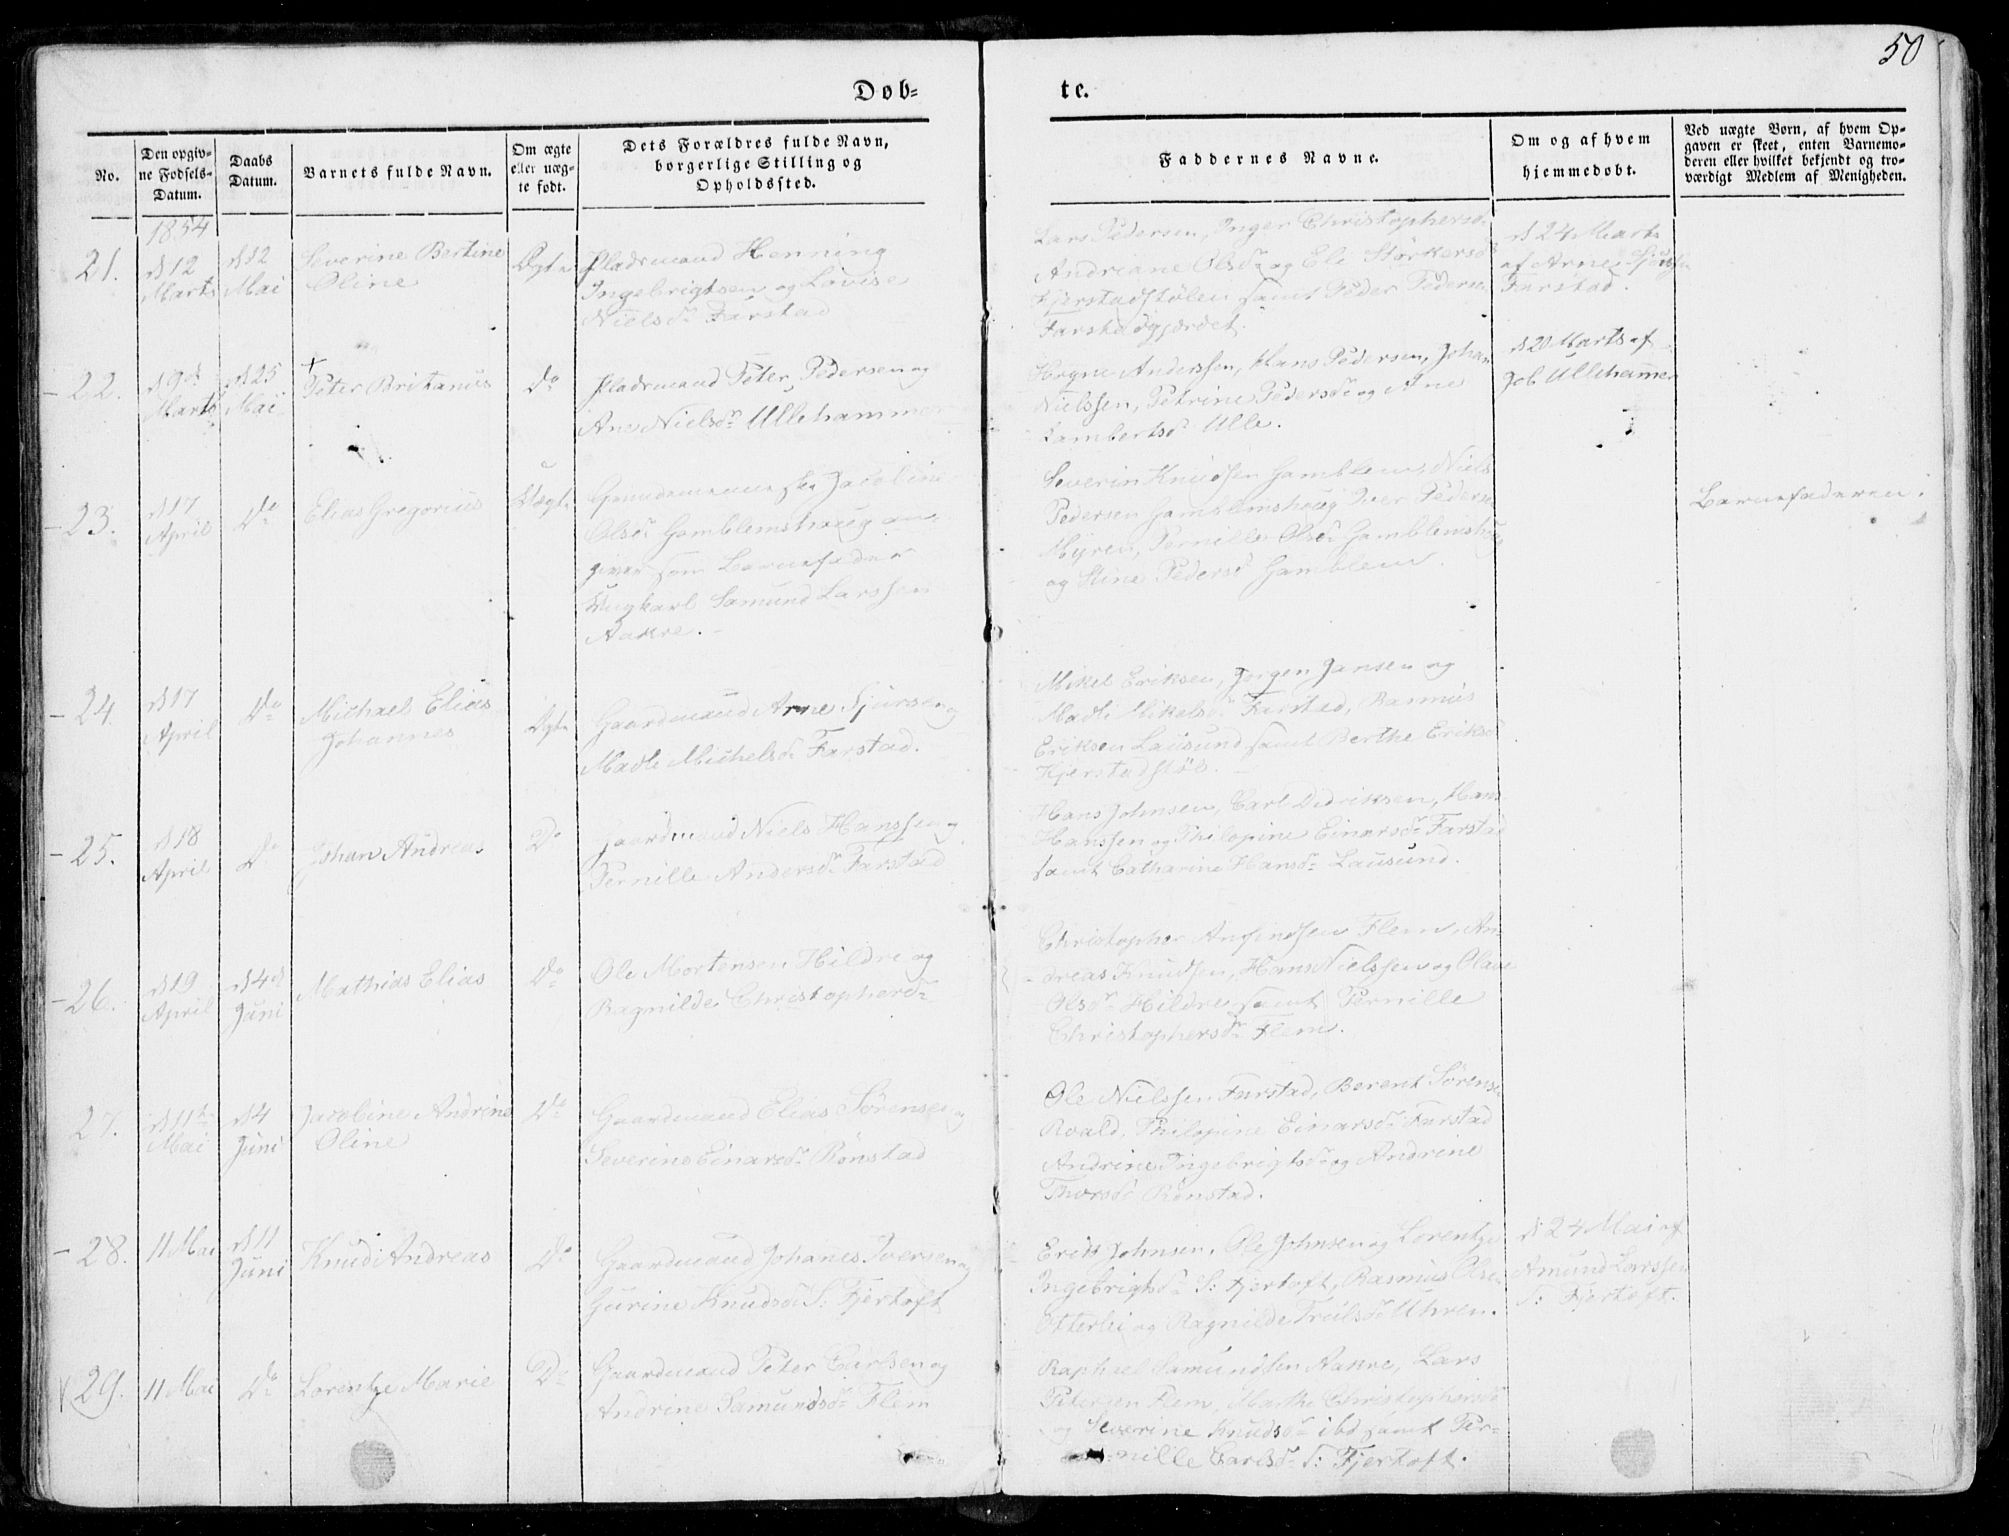 50
Døb-
te.
No.
Den opgiv-
ne Fødsels-
Datum.
Daabs
Datum.
Barnets fulde Navn.
Om ægte
eller uæg-
te født.
Dets Forældres fulde Navn,
borgerlige Stilling og
Opholdssted.
Faddernes Navne.
Om og af hvem
hjemmedøbt.
Ved uægte Børn, af hvem Op-
gaven er skeet, enten Barnemo-
deren eller hvilket bekjendt og tro-
værdigt Medlem af Menigheden.
1854
21.
d 12
Marts
d 12
Mai
Severine Bertine
Oline
Ægte
Pladsmand Henning
Ingebrigtsen og Lovise
Nielsdr Farstad
Lars Pedersen, Inger Christophersdr
Andriane Olsdr og Ele Størkersdr
Kjerstadstølen samt Peder Pedersen
Farstadgjærdet.
d 24 Marts
af Arne
Farstad.
22.
d 9d
Marts
d 25
Mai
+
Peter Britanus
Do
Pladsmand Peter Pedersen og
Ane Nielsdr Ullehammer
Høgne Anderssen, Hans Pedersen, Johan
Nielssen, Petrine Pedersdr og Ane
Lambertsdr Ulle.
d 20 Marts af
Job Ullehammer
23.
d 17
April
Do
Elias Gregorius
Uægte
Jacobine
Olsdr Gamblemshaug an-
giver som Barnefader
Ungkarl Samund Larssen
Aakre.
Severin Knudsen Gamblem, Niels
Pedersen Gamblemshaug Iver Peders
Myren, Pernille Olsdr Gamblemshaug
og Stine Pedersdr Gamblem.
Barnefaderen.
24
d 17
April
Do
Michael Elias
Johannes
Ægte
Gaardmand Arne Sjursen og
Madli Michelsdr Farstad.
Mikel Eriksen, Jørgen Jansen og
Madli Mikelsdr Farstad, Rasmus
Eriksen Lausund samt Berthe Eriksdr
Kjerstadstøb.
25.
d 18
April
Do
Johan Andreas
Do
Gaardmand Niels Hanssen og
Pernille Andersdr Farstad
Hans Johnsen, Carl Didriksen, Hans
Hanssen og Philopine Einarsdr Farstad
samt Catharine Hansdr Lausund.
26.
d 19
April
d 4d
Juni
Mathias Elias
Do
Ole Mortensen Hildre og
Ragnilde Christophersdr
Christopher Anfindsen Flem, An-
dreas Knudsen, Hans Nielssen og Olave
Olsdr Hildre samt Pernille
Christophersdr Flem.
27.
d 11te
Mai
d 4
Juni
Jacobine Andrine
Oline
Do
Gaardmand Elias Sørensen og
Severine Einarsdr Rønstad
Ole Nielssen Farstad, Berent Sørense
Roald, Philopine Einarsdr Farstad
Andrine Ingebrigtsdr og Andrine
Thorsdr Rønstad.
28.
11 Mai
d 11
Juni
Knud Andreas
Do
Gaardmand Johanes Iversen og
Gurine Knudsdr S: Fjertoft
Erik Johnsen, Ole Johnsen og Lorentze
Ingebrigtsdr S: Fjertoft, Rasmus Olsen
Otterlei og Ragnilde Trulsdr Uhren.
d 24 Mai af
Amund Larssen
S: Fjertoft.
29.
11 Mai
Do
Lorentze Marie
Do
Gaardmand Peter Carlsen og
Andrine Samundsdr Flem
Raphael Samundsen Aakre, Lars
Petersen Flem, Marthe Christophersdr
og Severine Knudsdr ibd samt Per-
nille Carlsdr S: Fjertoft.